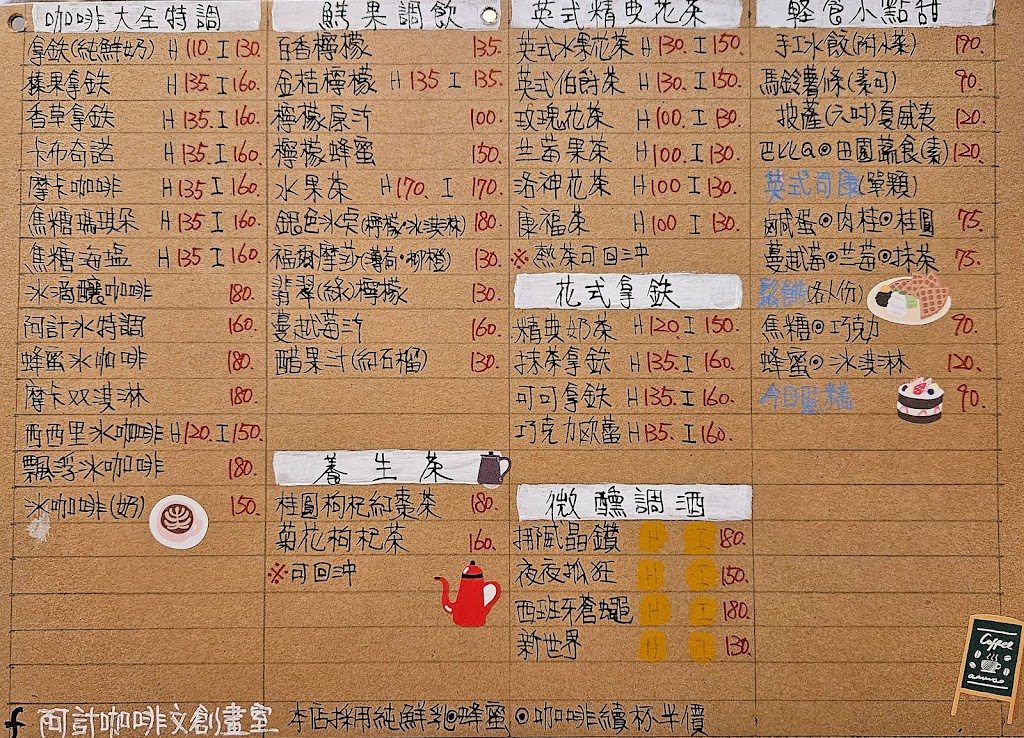 咖啡大全特調
拿鉄(純鮮奶) H 110. I 130.
榛果拿鉄 H 135. I 160.
香草拿鉄 H 135. I 160.
卡布奇諾 H 135. I 160.
摩卡咖啡 H 135 I 160.
焦糖瑪琪朵 H 135 I 160.
焦糖海塩 H 135 I 160.
冰滴釀咖啡 180.
阿計冰特調 160.
蜂蜜冰咖啡 180.
摩卡双淇淋 180.
西西里冰咖啡 H 120. I 150.
飄浮冰咖啡 180.
冰咖啡(奶) 150.
鮮果調飲
百香檸檬 135.
金桔檸檬 H 135 I 135.
檸檬原汁 100.
檸檬蜂蜜 150.
水果茶 H 170. I 170.
銀色冰炫(檸檬·冰淇淋) 180.
福爾摩莎(薄荷·柳橙) 130.
翡翠(綠)檸檬 130.
蔓越莓汁 160.
醋果汁(紅石榴) 130.
養生茶
桂圓枸杞紅棗茶 180.
菊花枸杞茶 160.
※可回沖
英式精典花茶
英式水果花茶 H 130. I 150.
英式伯爵茶 H 130. I 150.
玫瑰花茶 H 100. I 130.
兰莓果茶 H 100. I 130.
洛神花茶 H 100 I 130.
康福茶 H 100 I 130.
※熱茶可回沖
花式拿鉄
精典奶茶 H 120. I 150.
抹茶拿鉄 H 135. I 160.
可可拿鉄 H 135. I 160.
巧克力欧蕾 H 135. I 160.
微醺調酒
挪威晶鑽 H I 180.
夜夜孤狂 H I 150.
西班牙蒼蠅 H I 180.
新世界 H I 130.
輕食小點甜
手工水餃(附小菜) 170.
馬鈴薯條(素可) 90.
披薩(六吋)夏威夷 120.
巴比Q⊙田園蔬食(素) 120.
英式司康(單顆)
鹹蛋⊙肉桂⊙桂圓 75.
蔓越莓⊙兰莓⊙抹茶 75.
鬆餅(2人份)
焦糖⊙巧克力 90.
蜂蜜⊙冰淇淋 120.
今日蛋糕 90.
Coffee
f 阿計咖啡文創畫室 本店採用純鮮乳⊙蜂蜜⊙咖啡續杯半價